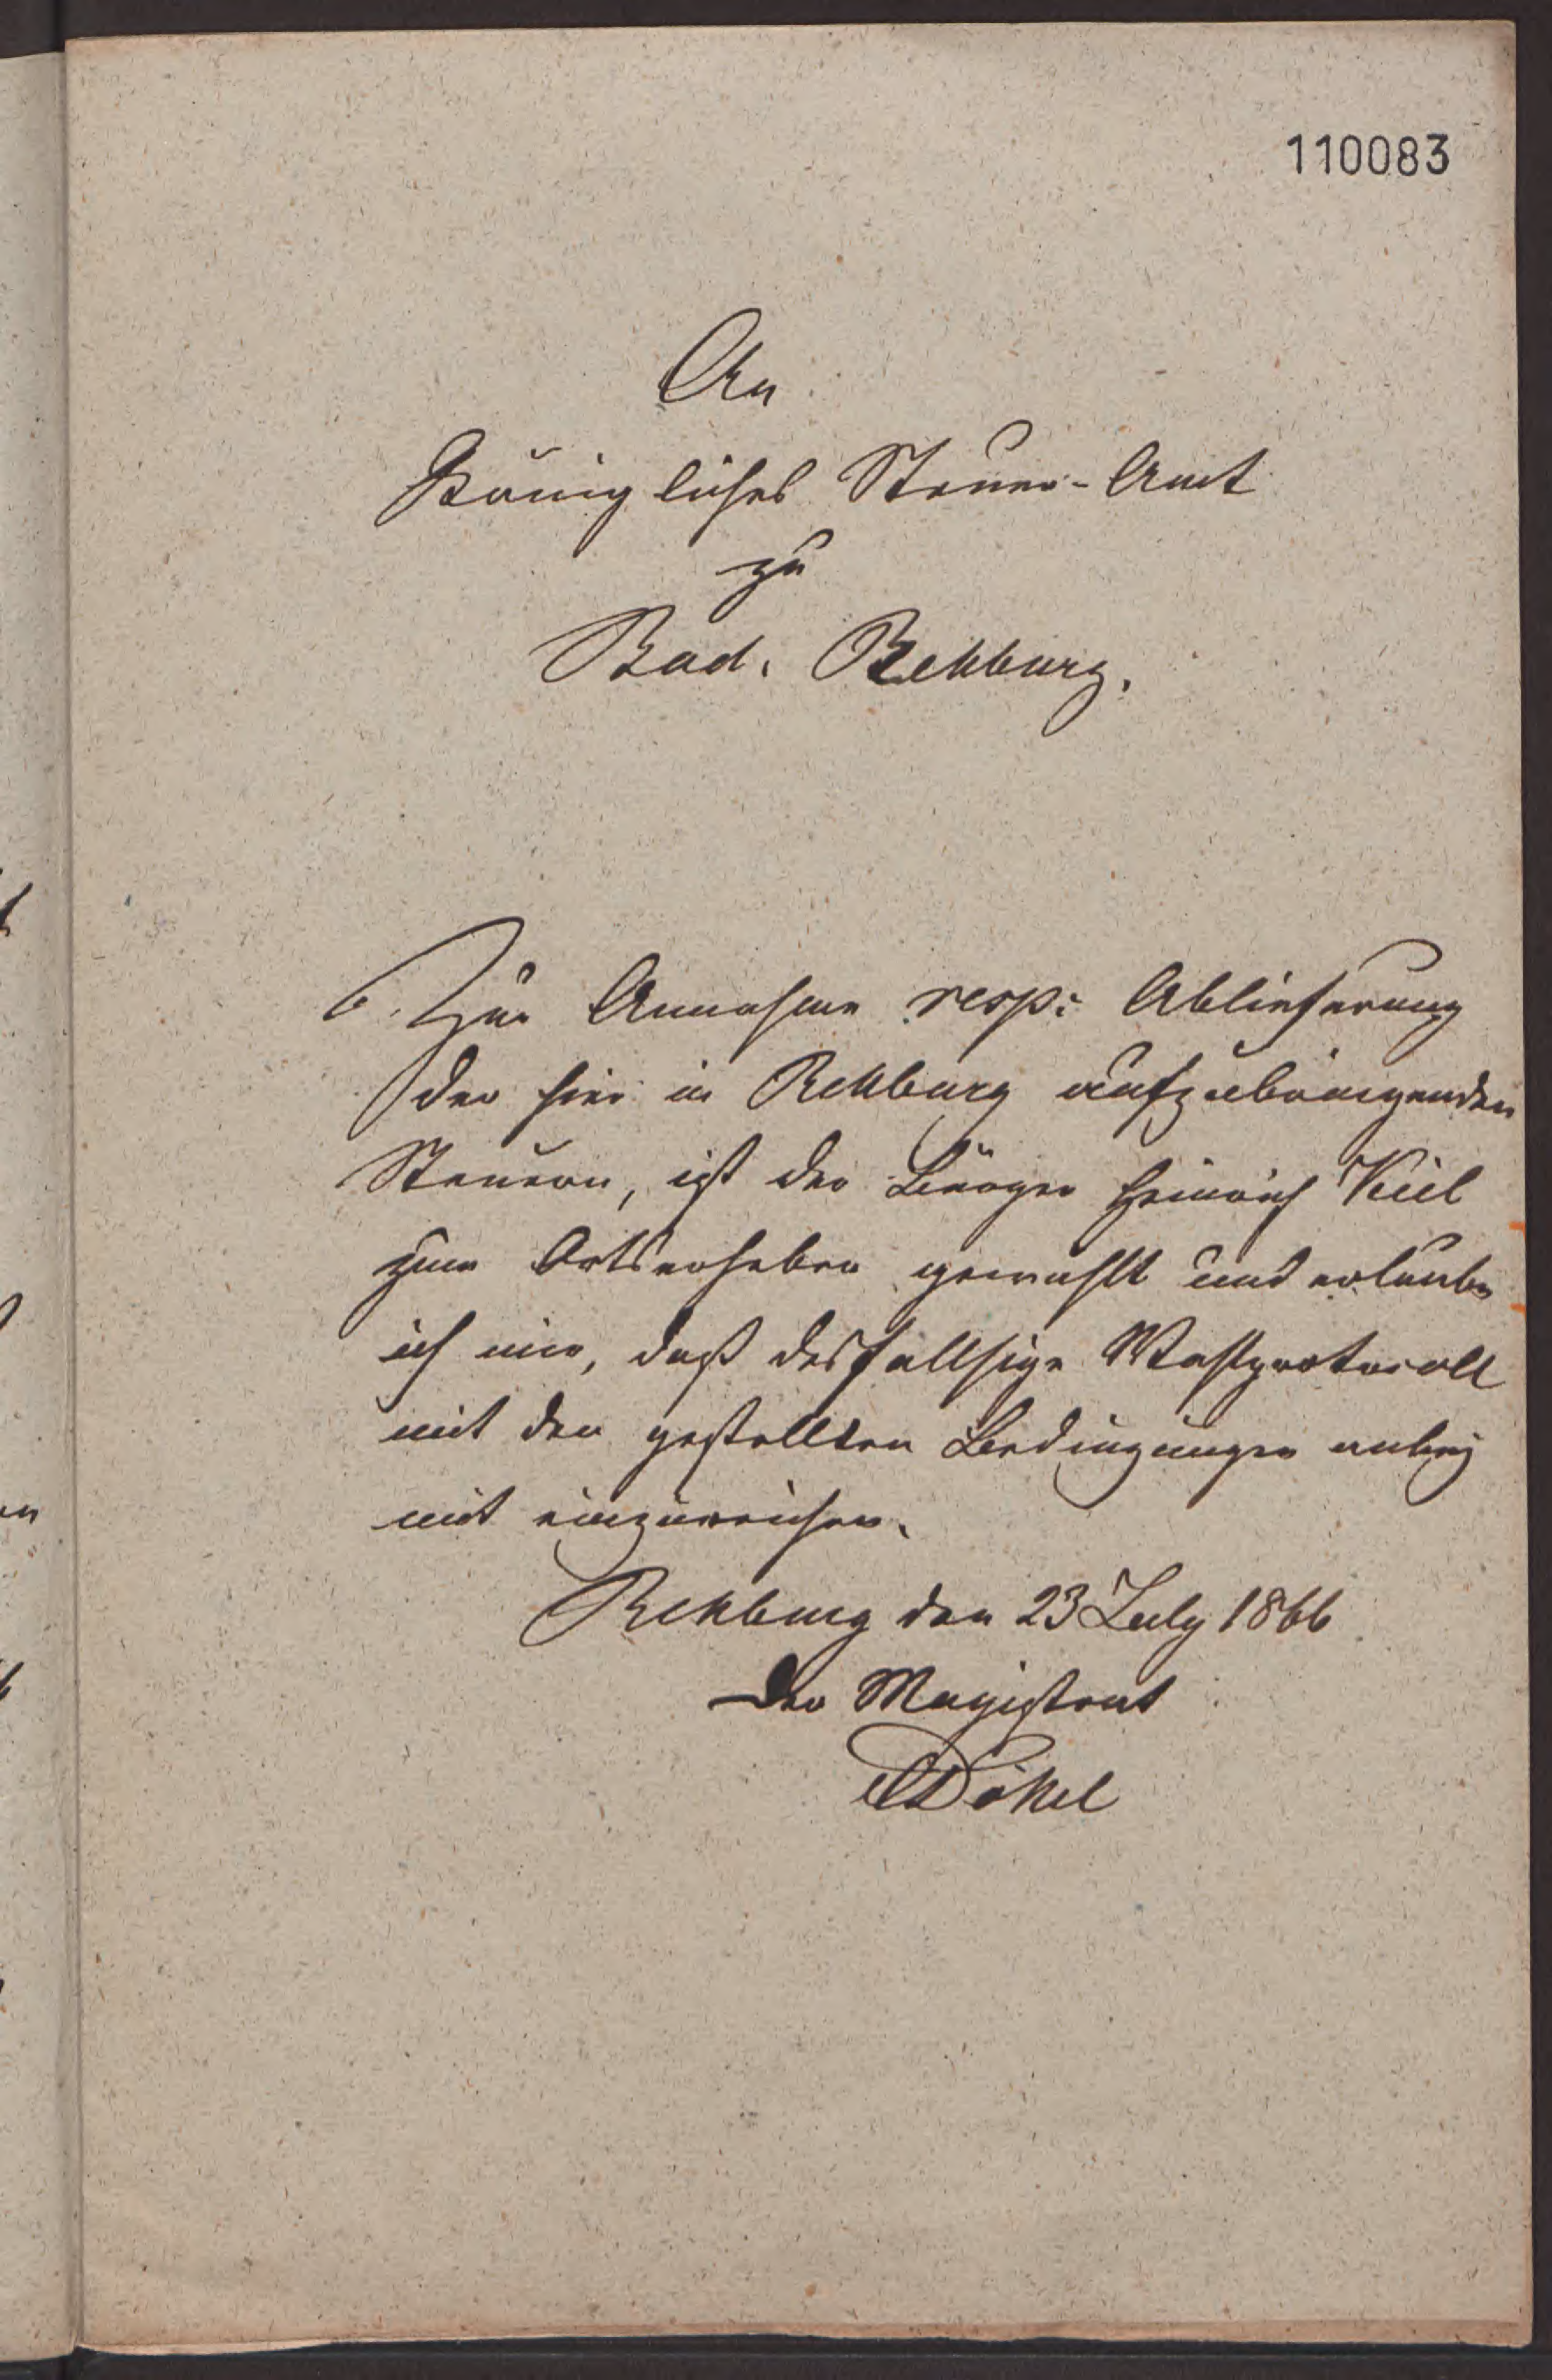 110083
An
Königliches Steuer-Amt
zu
Bad. Rehburg.
Zur Annahme resp: Ablieferung
der hier in Rehburg aufzubringenden
Steuern, ist der Bürger Heinrich Kiel
zum Ortserheber gewählt und erlaube
ich mir, daß desfallsige Wahlprotocoll
mit den gestellten Bedingungen anbey
mit einzureichen.
Rehburg den 23 July 1866
Der Magistrat
Dökel